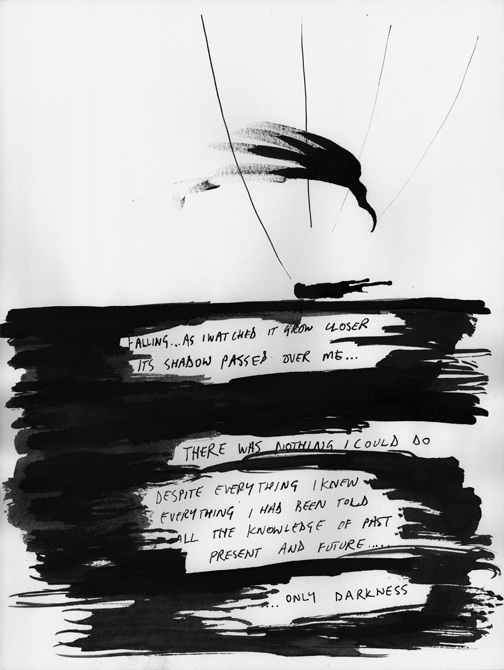 FALLING...AS I WATCHED IT GROW CLOSER
ITS SHADOW PASSED OVER ME...
THERE WAS NOTHING I COULD DO
DESPITE EVERYTHING I KNEW
EVERYTHING I HAD BEEN TOLD
ALL THE KNOWLEDGE OF PAST
PRESENT AND FUTURE.....
...ONLY DARKNESS